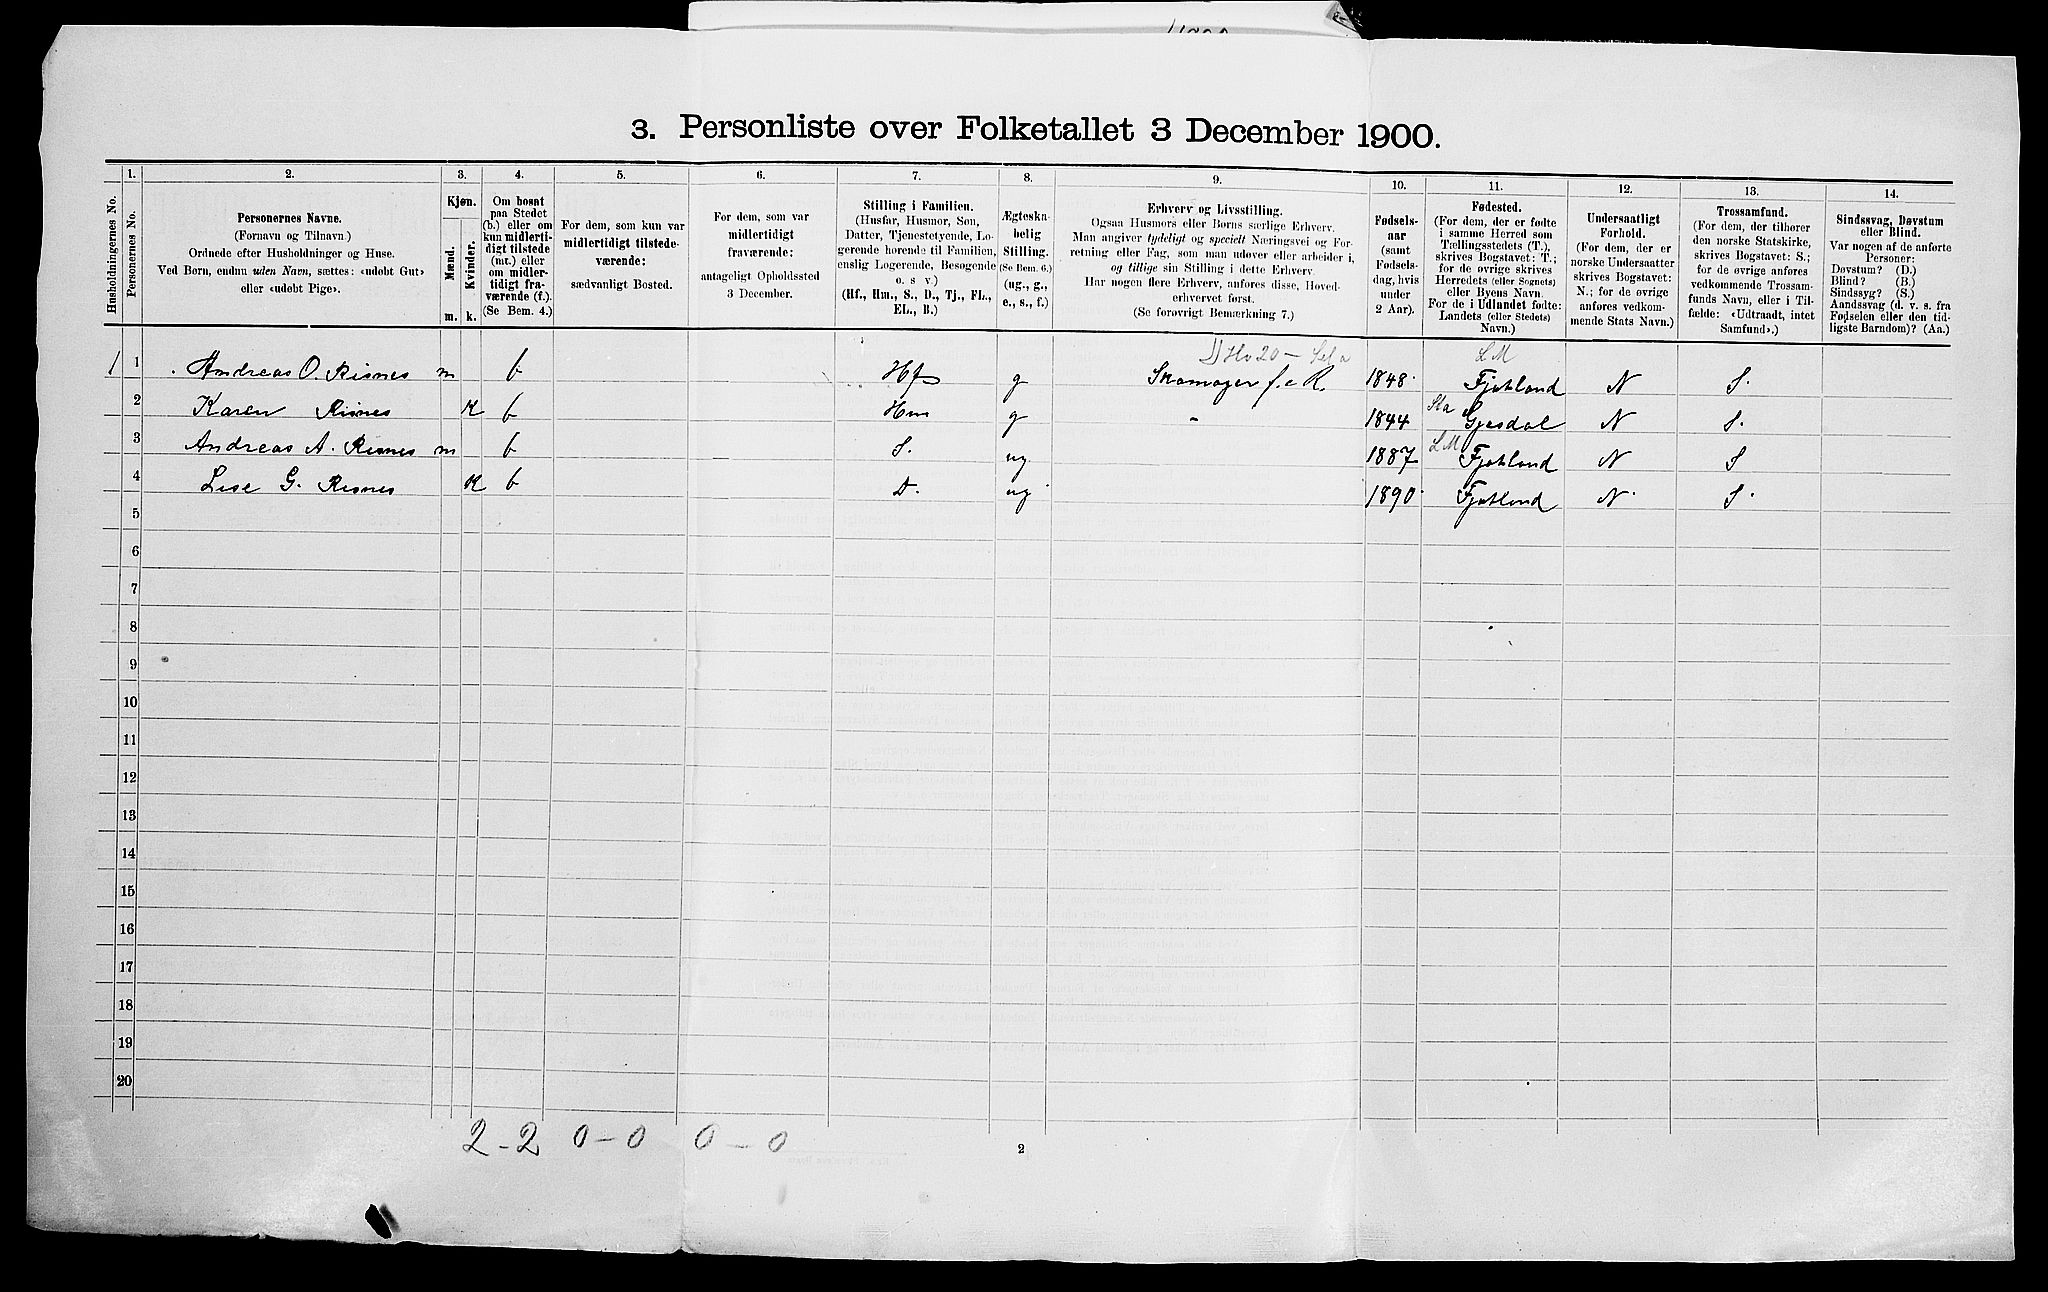 3. Personliste over Folketallet 3 December 1900.
Husholdningernes No.
1.
Personernes No.
2.
Personernes Navne.
(Fornavn og Tilnavn.)
Ordnede efter Husholdninger og Huse.
Ved Børn, endnu uden Navn, sættes: «udøbt Gut»
eller «udøbt Pige».
3.
Kjøn.
Mænd.
Kvinder.
m. k.
4.
Om bosat
paa Stedet
(b.) eller om
kun midlerti-
digt tilstede
(mt.) eller
om midler-
tidigt fra-
værende (f.).
(Se Bem. 4.)
5.
For dem, som kun var
midlertidigt tilstede-
værende:
sædvanligt Bosted.
6.
For dem, som var
midlertidigt
fraværende:
antageligt Opholdssted
3 December.
7.
Stilling i Familien.
(Husfar, Husmor, Søn,
Datter, Tjenestetyende, Lo-
gerende hørende til Familien,
enslig Logerende, Besøgende
o. s. v.)
(Hf., Hm., S., D., Tj., FL.,
EL., B.)
8.
Ægteska-
belig
Stilling.
(Se Bem. 6.)
(ug., g.,
e., s., f.)
9.
Erhverv og Livsstilling.
Ogsaa Husmors eller Børns særlige Erhverv.
Man angiver tydeligt og specielt Næringsvei og For-
retning eller Fag, som man udøver eller arbeider i,
og tillige sin Stilling i dette Erhverv.
Har nogen flere Erhverv, anføres disse, Hoved-
erhvervet først.
(Se forøvrigt Bemærkning 7.)
10.
Fødsels-
aar
(samt
Fødsels-
dag, hvis
under
2 Aar).
11.
Fødested.
(For dem, der er fødte
i samme Herred som
Tællingsstedets (T.),
skrives Bogstavet: T.;
for de øvrige skrives
Herredets (eller Sognets)
eller Byens Navn.
For de i Udlandet fødte:
Landets (eller Stedets)
Navn.)
12.
Undersaatligt
Forhold.
(For dem, der er
norske Undersaatter
skrives Bogstavet:
N.; for de øvrige
anføres vedkom-
mende Stats Navn.)
13.
Trossamfund.
(For dem, der tilhører
den norske Statskirke,
skrives Bogstavet: S.;
for de øvrige anføres
vedkommende Trossam-
funds Navn, eller i Til-
fælde: «Udtraadt, intet
Samfund».)
14.
Sindssvag, Døvstum
eller Blind.
Var nogen af de anførte
Personer:
Døvstum? (D.)
Blind? (B.)
Sindssyg? (S.)
Aandssvag (d. v. s. fra
Fødselen eller den tid-
ligste Barndom)? (Aa.)
Hv 20 — LM
1 1 Andreas O. Risnes m b Hf g Skomager f. e. R. 1848 Fjotland N S.
Sta
2 Karen Risnes K b Hm g " 1844 Gjesdal N S.
LM
3 Andreas A. Risnes m b S. ug 1887 Fjotland N S
4 Lise G. Risnes K b D. ug 1890 Fjotland N. S.
5
6
7
8
9
10
11
12
13
14
15
16
17
18
19
20
2 - 2 0 - 0 0 - 0
2